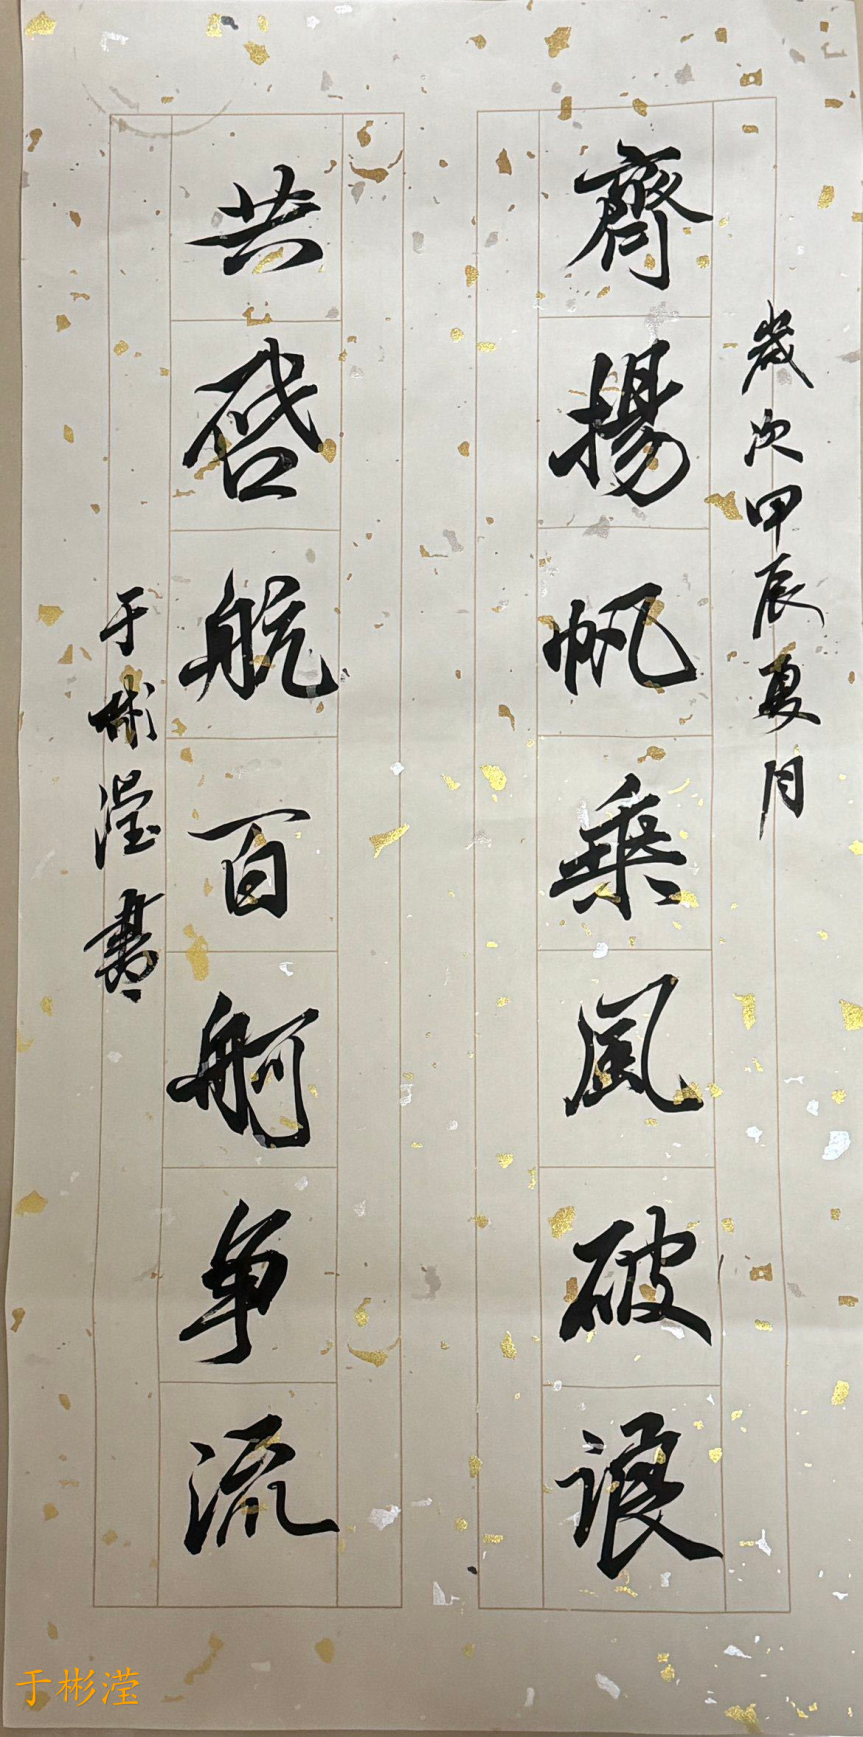 歲次甲辰夏月
齊揚帆乘風破浪
共啓航百舸爭流
于彬滢書
于彬滢